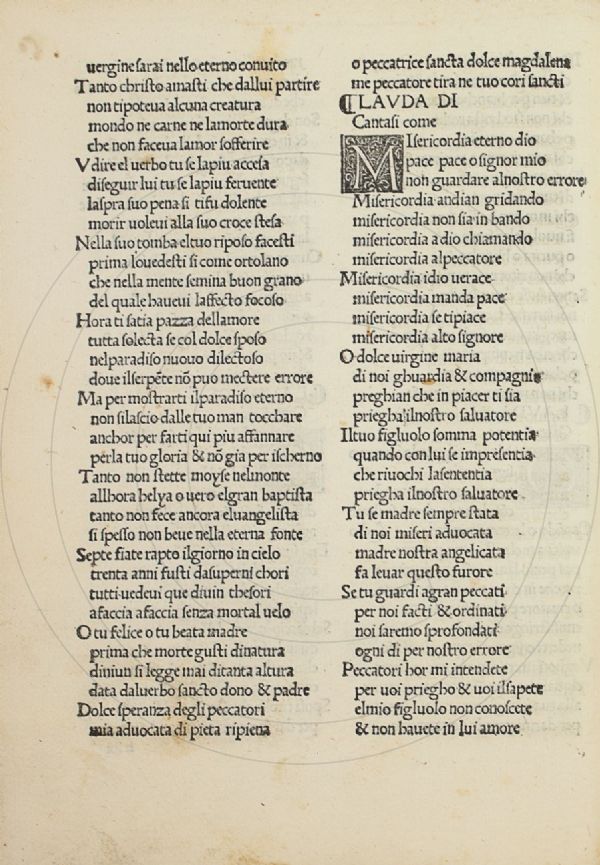 uergine sarai nello eterno conuito
Tanto christo amasti che dallui partire
non tipoteua alcuna creatura
mondo ne carne ne lamorte dura
che non faceua lamor sofferire
Vdire el uerbo tu se lapiu accesa
diseguir lui tu se lapiu feruente
laspra suo pena si tifu dolente
morir uoleui alla suo croce stesa
Nella suo tomba el tuo riposo facesti
prima louedesti si come ortolano
che nella mente semina buon grano
del quale haueui laffecto focoso
Hora ti satia pazza dellamore
tutta solecta se col dolce sposo
nelparadiso nuouo dilectoso
doue ilserpẽte nõ puo mectere errore
Ma per mostrarti ilparadiso eterno
non silascio dalle tuo man tocchare
anchor per farti qui piu affannare
perla tuo gloria & nõ gia per ischerno
Tanto non stette moyse nelmonte
allhora helya o uero elgran baptista
tanto non fece ancora eluangelista
si spesso non beue nella eterna fonte
Septe fiate rapto ilgiorno in cielo
trenta anni fusti dasuperni chori
tutti uedeui que diuin thesori
afaccia afaccia senza mortal uelo
O tu felice o tu beata madre
prima che morte gusti dinatura
diniun si legge mai ditanta altura
data daluerbo sancto dono & padre
Dolce speranza degli peccatori
mia aduocata di pieta ripiena
o peccatrice sancta dolce magdalena
me peccatore tira ne tuo cori sancti
¶ LAVDA DI
Cantasi come
MIsericordia eterno dio
pace pace o signor mio
non guardare alnostro errore
Misericordia andian gridando
misericordia non sia in bando
misericordia a dio chiamando
misericordia alpeccatore
Misericordia idio uerace
misericordia manda pace
misericordia se tipiace
misericordia alto signore
O dolce uirgine maria
di noi ghuardia & compagnia
preghian che in piacer ti sia
priegha ilnostro saluatore
Iltuo figluolo somma potentia
quando con lui se impresentia
che riuochi lasententia
priegha ilnostro saluatore
Tu se madre sempre stata
di noi miseri aduocata
madre nostra angelicata
fa leuar questo furore
Se tu guardi agran peccati
per noi facti & ordinati
noi saremo sprofondati
ogni di per nostro errore
Peccatori hor mi intendete
per uoi priegho & uoi ilsapete
elmio figluolo non conoscete
& non hauete in lui amore